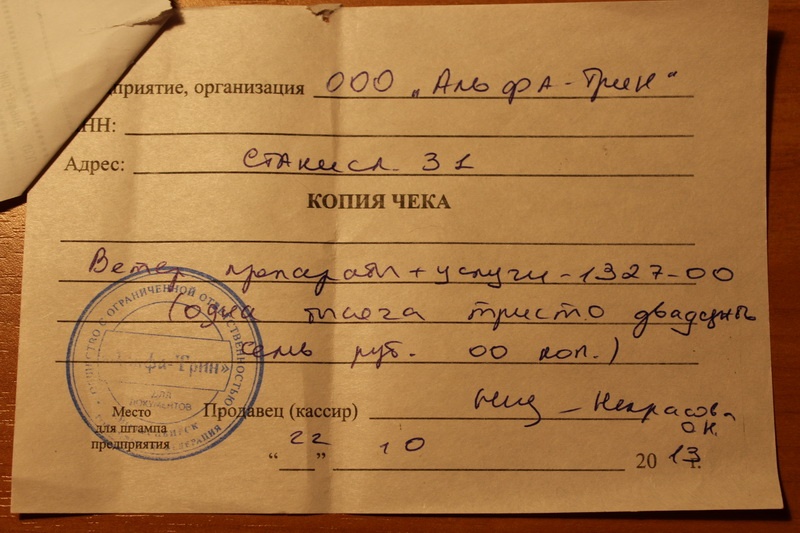 приятие, организация ООО „Альфа-Грин“
НН:
Адрес: Станисл. 31
КОПИЯ ЧЕКА
Ветер препараты + услуги - 1327-00
(одна тысяча тристо двадцать
семь руб. 00 коп.)
ОБЩЕСТВО С ОГРАНИЧЕННОЙ ОТВЕТСТВЕННОСТЬЮ
фа-Грин»
ДЛЯ
ДОКУМЕНТОВ
Место
для штампа
предприятия
Продавец (кассир) Некрасова
О.Н.
“22” 10 2013 г.